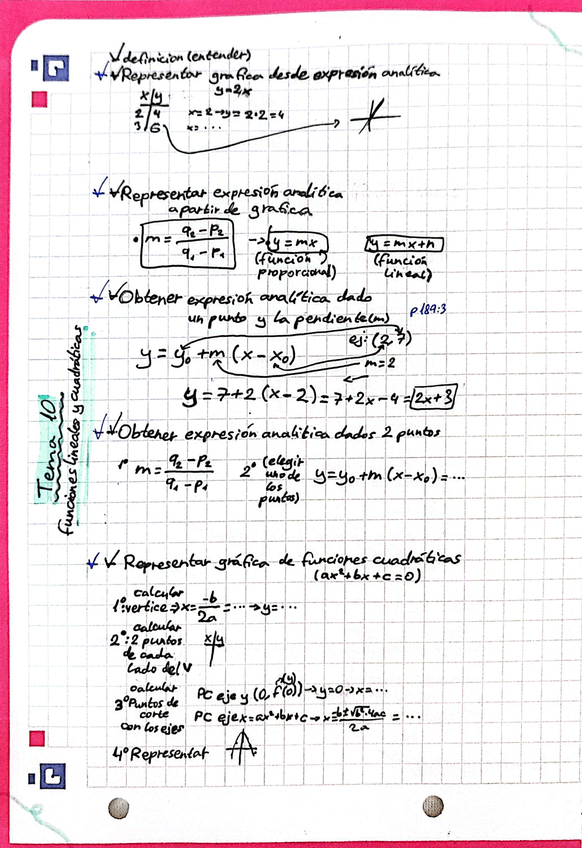 definicion (entender)
Representar grafica desde expresión analítica
y=2x
x|y
2|4 x=2→y=2·2=4
3|6 x=...
Representar expresión analitica
a partir de grafica
• m = q₂-p₂ / q₁-p₁ → y=mx y=mx+n
(función proporcional) (función lineal)
Obtener expresión analítica dado
un punto y la pendiente(m) p189:3
ej: (2,7)
y = y₀ + m (x-x₀) m=2
y = 7+2 (x-2) = 7+2x-4 = 2x+3
Obtener expresión analitica dados 2 puntos
1º m = q₂-p₂ / q₁-p₁ 2º (elegir uno de los puntos) y=y₀+m (x-x₀)=...
Representar gráfica de funciones cuadráticas
(ax²+bx+c=0)
1º: calcular vertice ⇒ x= -b / 2a = ... → y=...
2º: calcular 2 puntos de cada lado del V x|y
3º calcular Puntos de corte con los ejes
PC eje y (0, f(0)) → y=0 → x=...
(y)
PC eje x = ax²+bx+c → x= -b±√b²-4ac / 2a = ...
4º Representar
Tema 10
funciones lineales y cuadráticas